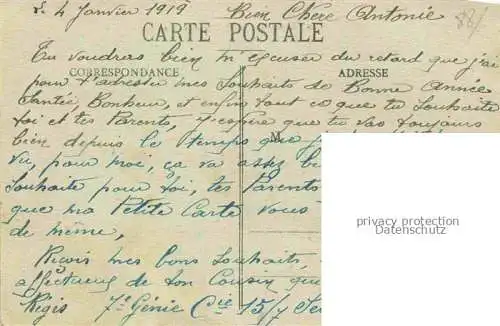 Le 4 Janvier 1919 Bien Chère Antonie 88/
CARTE POSTALE
Tu voudras bien m'excuser du retard que j'ai
CORRESPONDANCE ADRESSE
pour t'adresser mes Souhaits de Bonne Année
Santé, Bonheur, et enfin tout ce que tu Souhaite
toi et tes Parents, J'espère que tu vas toujours
bien depuis le temps que
M
vu, pour moi, ça va assez bi
Souhaite pour toi, tes Parents
que ma Petite Carte vous
de même,
privacy protection
permanentes Dokument
Reçois mes bons souhaits,
affectueux de ton Cousin que
Régis 7e Génie Cie 15/7 Se